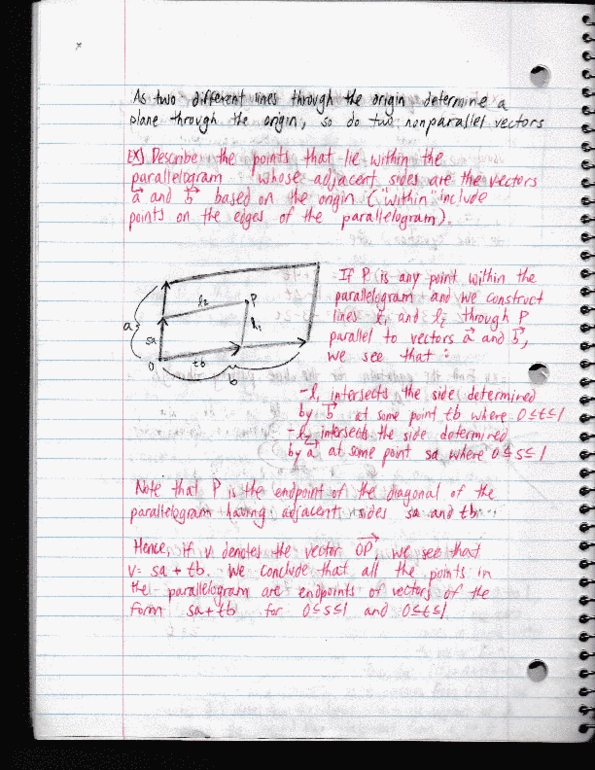 As two different lines through the origin determine a
plane through the origin, so do two nonparallel vectors
EX) Describe the points that lie within the
parallelogram whose adjacent sides are the vectors
a⃗ and b⃗ based on the origin ("within" include
points on the edges of the parallelogram).
l₂
P
a
sa
l₁
0
tb
b
If P is any point within the
parallelogram and we construct
lines l₁ and l₂ through P
parallel to vectors a⃗ and b⃗,
we see that :
-l₁ intersects the side determined
by b⃗ at some point tb where 0≤t≤1
-l₂ intersects the side determined
by a⃗ at some point sa where 0≤s≤1
Note that P is the endpoint of the diagonal of the
parallelogram having adjacent sides sa and tb.
Hence, if v denotes the vector OP⃗, we see that
v= sa + tb. We conclude that all the points in
the parallelogram are endpoints of vectors of the
form sa+tb for 0≤s≤1 and 0≤t≤1